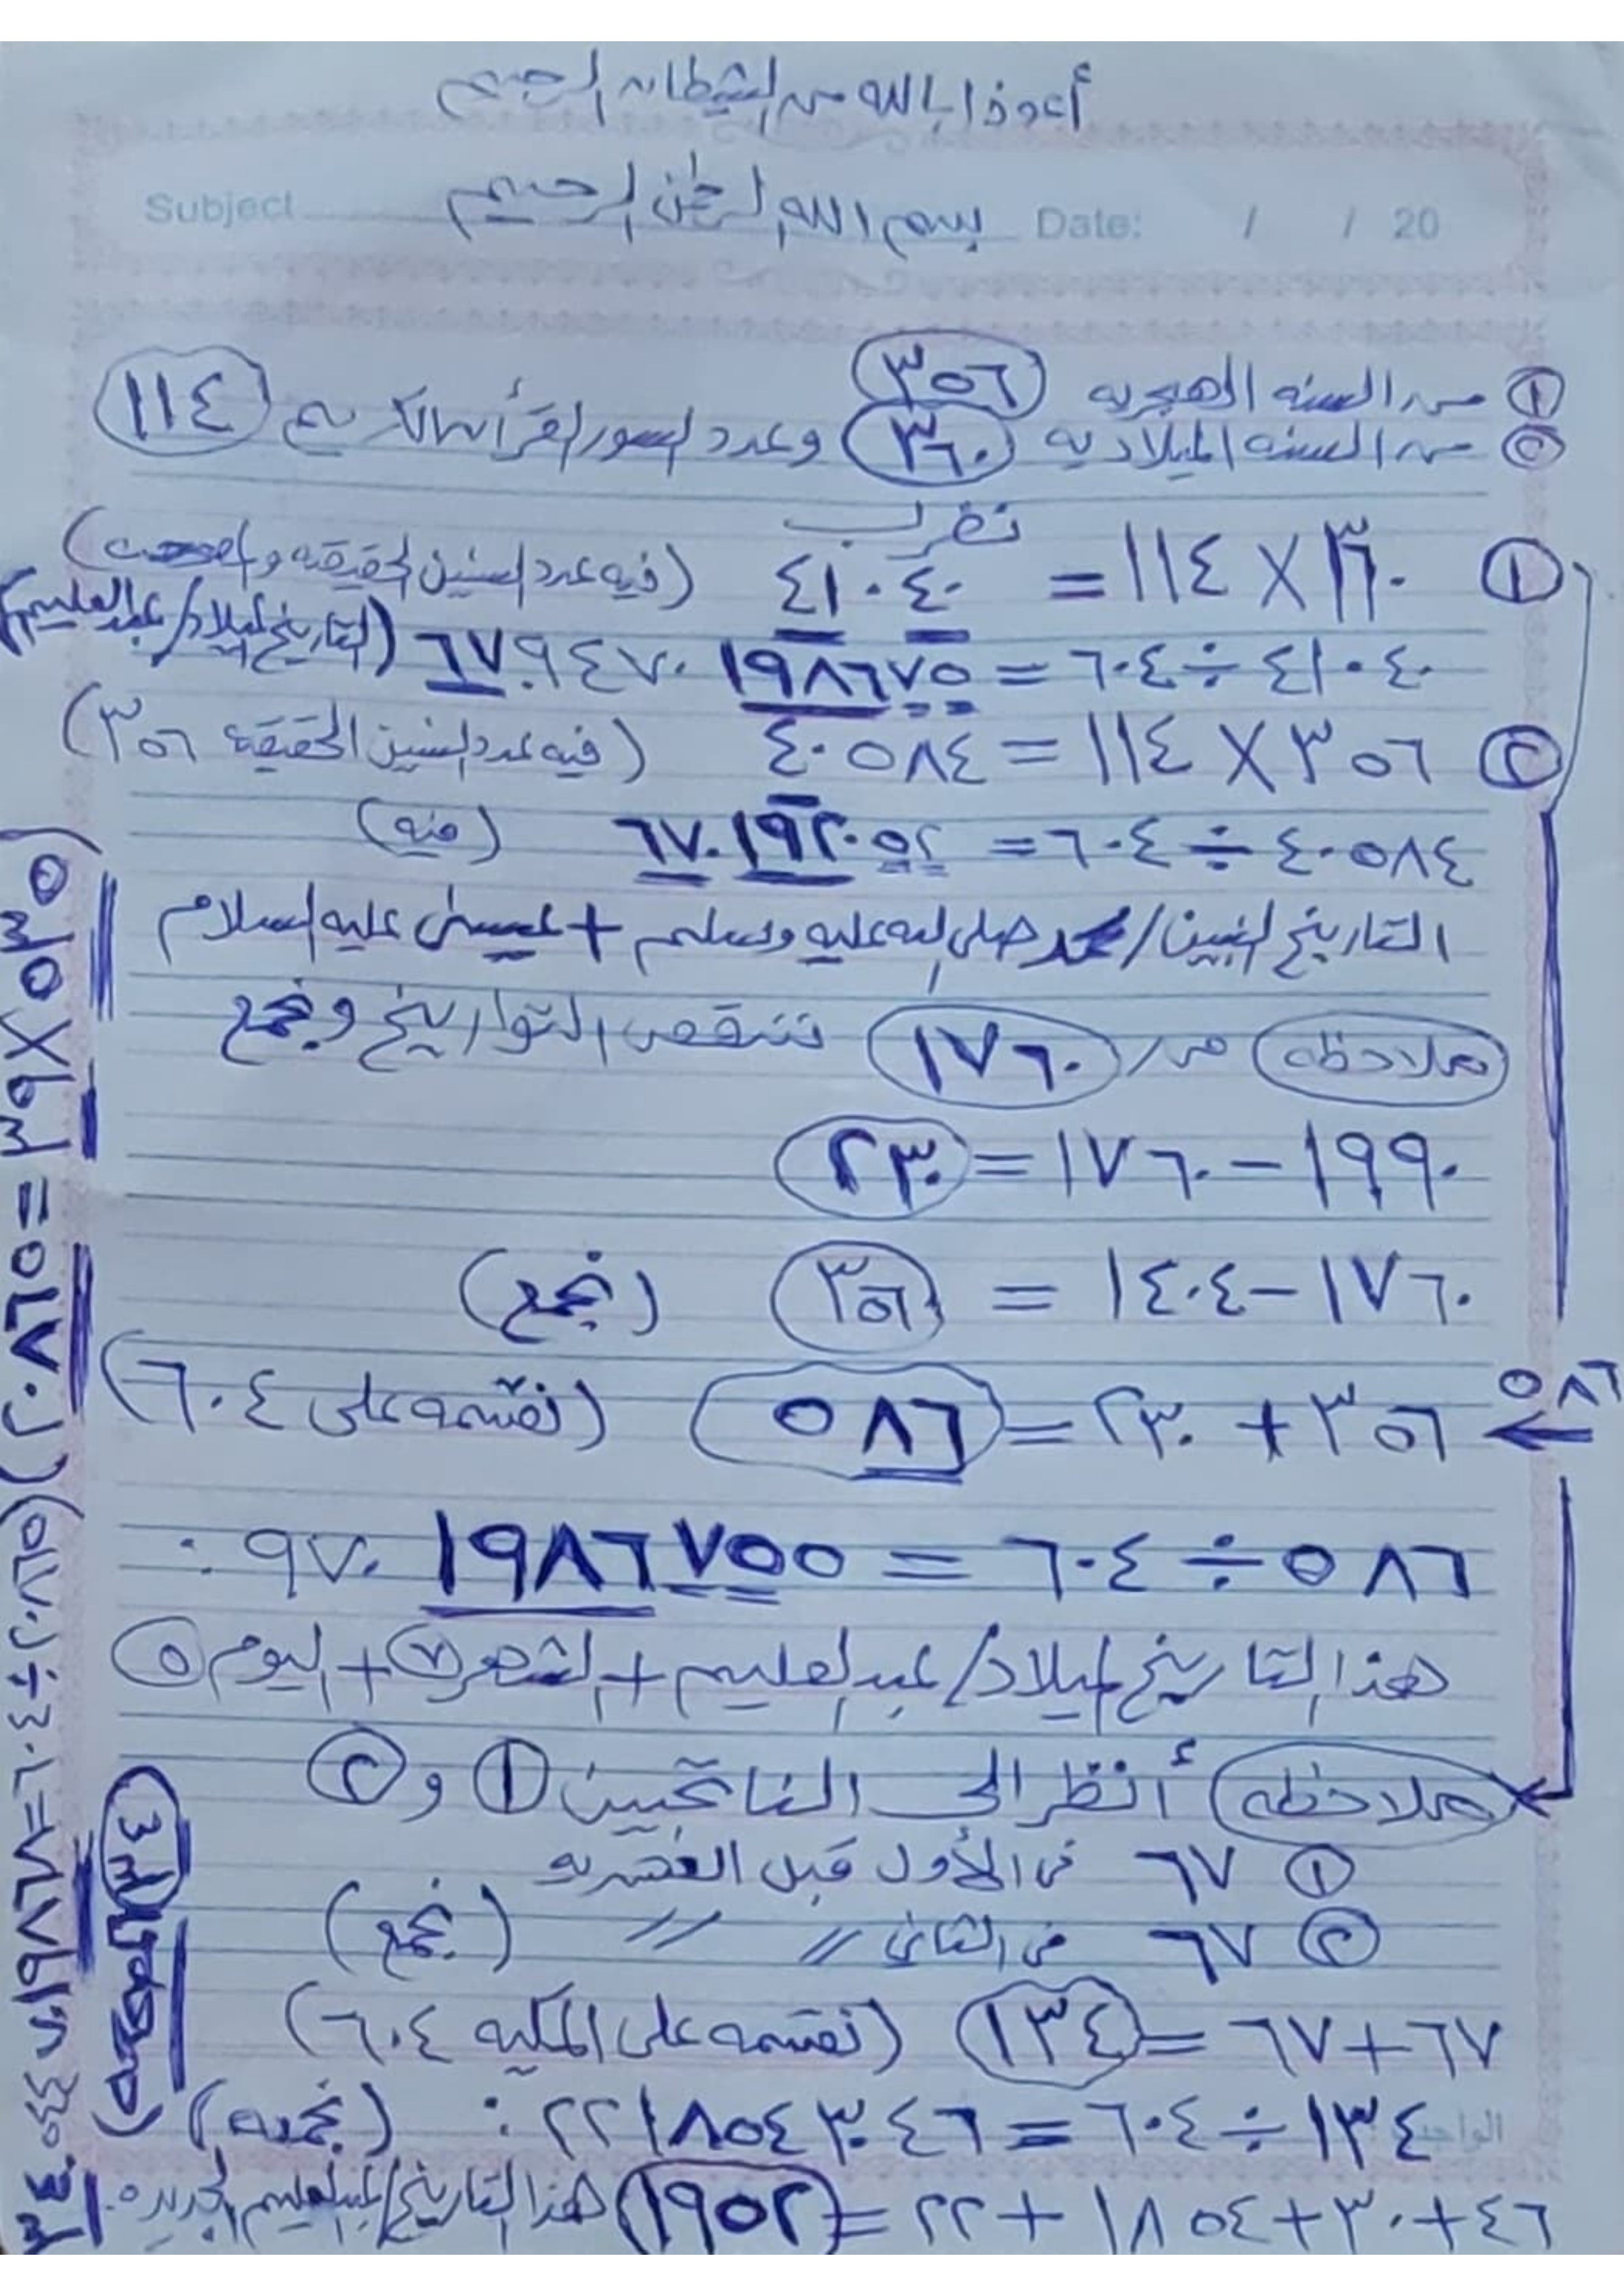 أعوذ بالله من الشيطان الرجيم
Subject بسم الله الرحمن الرحيم Date: / / 20
① من السنه الهجريه ٣٥٦
② من السنه الميلاديه ٣٦٠ وعدد السور القرأن الكريم ١١٤
نضرب
① ٣٦٠ × ١١٤ = ٤١٠٤٠ (فيه عدد السنين الحقيقه
٤١٠٤٠ ÷ ٦٠٤ = ٦٧.٩٤٧٠١٩٨٦٧٥ (التاريخ لميلاد/عبدالعليم)
② ٣٥٦ × ١١٤ = ٤٠٥٨٤ (فيه عدد السنين الحقيقه ٣٥٦)
٤٠٥٨٤ ÷ ٦٠٤ = ٦٧.١٩٢٠٥٢ (منه)
التاريخ لنبين/محمد صلى الله عليه وسلم + عيسى عليه السلام
ملاحظه من ١٧٦٠ ننقص التواريخ ونجمع
١٩٩٠ - ١٧٦٠ = ٢٣٠
١٧٦٠ - ١٤٠٤ = ٣٥٦ (نجمع)
٥٨٦
٣٥٦ + ٢٣٠ = ٥٨٦ (نقسمه على ٦٠٤)
٥٨٦ ÷ ٦٠٤ = ٠.٩٧٠١٩٨٦٧٥٥
هذا التاريخ لميلاد/عبدالعليم + الشهر ٧ + اليوم ٥
ملاحظه أنظر الى الناتجين ① و ②
① ٦٧ في الأول قبل العشريه
② ٦٧ في الثاني " " (نجمع)
٦٧ + ٦٧ = ١٣٤ (نقسمه على المكيه ٦٠٤)
١٣٤ ÷ ٦٠٤ = ٠.٢٢١٨٥٤٣٠٤٦ (نجمعه)
٤٦ + ٣٠ + ١٨٥٤ + ٢٢ = ١٩٥٢ هذا التاريخ/عبدالعليم الجديده